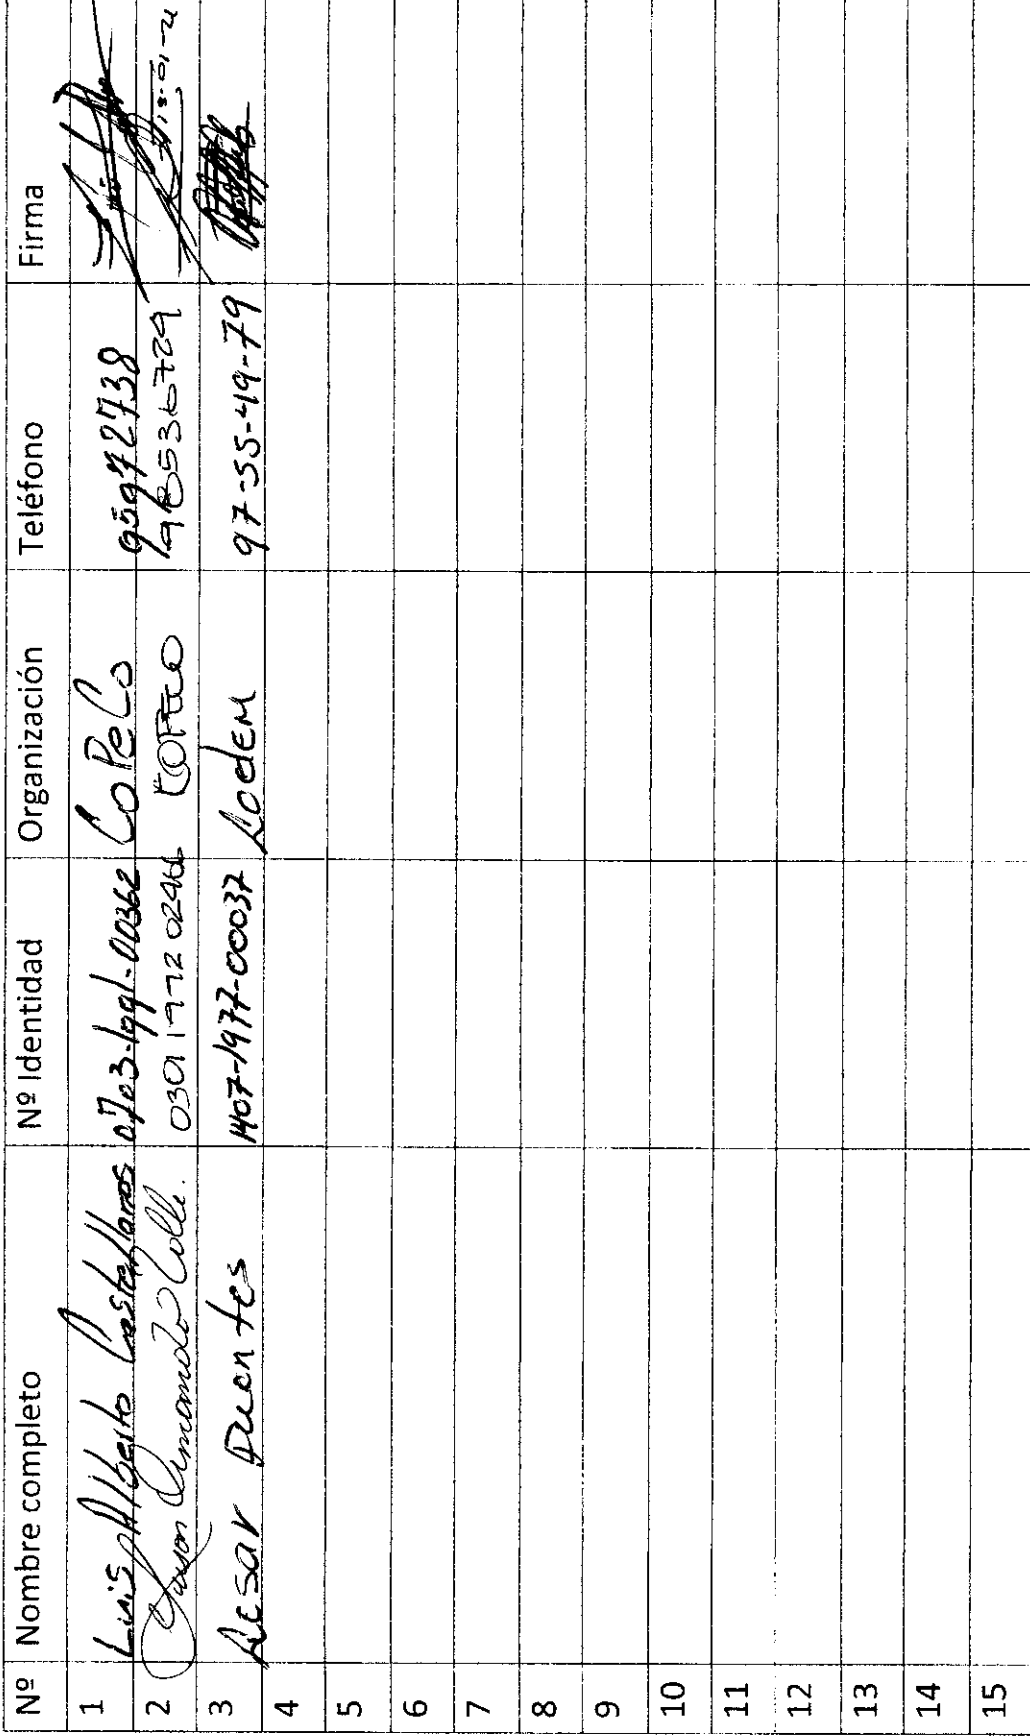 Nº Nombre completo Nº Identidad Organización Teléfono Firma
1 Luis Alberto Castellanos 0703-1991-00362 CoPeCo 95972738
2 Armando COPECO
3 Cesar Fuentes 1407-1977-00037 Codem 97-55-49-79
4
5
6
7
8
9
10
11
12
13
14
15